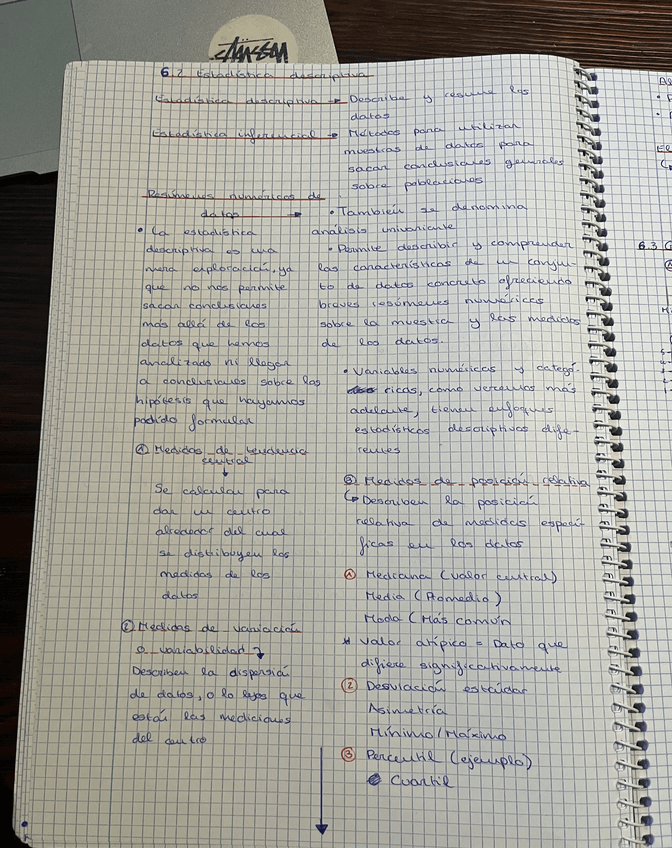 STÜSSY
6.2 Estadística descriptiva
Estadística descriptiva → Describe y resume los
datos
Estadística inferencial → Métodos para utilizar
muestras de datos para
sacar conclusiones generales
sobre poblaciones
Resúmenes numéricos de
datos →
• La estadística
descriptiva es una
mera exploración, ya
que no nos permite
sacar conclusiones
más allá de los
datos que hemos
analizado ni llegar
a conclusiones sobre las
hipótesis que hayamos
podido formular
• También se denomina
análisis univariante
• Permite describir y comprender
las características de un conjun-
to de datos concreto ofreciendo
breves resúmenes numéricos
sobre la muestra y las medidas
de los datos.
• Variables numéricas y categó-
ricas, como veremos más
adelante, tienen enfoques
estadísticos descriptivos dife-
rentes
① Medidas de tendencia
central
↓
Se calculan para
dar un centro
alrededor del cual
se distribuyen las
medidas de los
datos
② Medidas de variación
o variabilidad
Describen la dispersión
de datos, o lo lejos que
están las mediciones
del centro
③ Medidas de posición relativa
↳ Describen la posición
relativa de medidas especí-
ficas en los datos
① Mediana (Valor central)
Media (Promedio)
Moda (Más común
* Valor atípico = Dato que
difiere significativamente
② Desviación estándar
Asimetría
Mínimo/Máximo
③ Percentil (ejemplo)
Cuartil
6.3